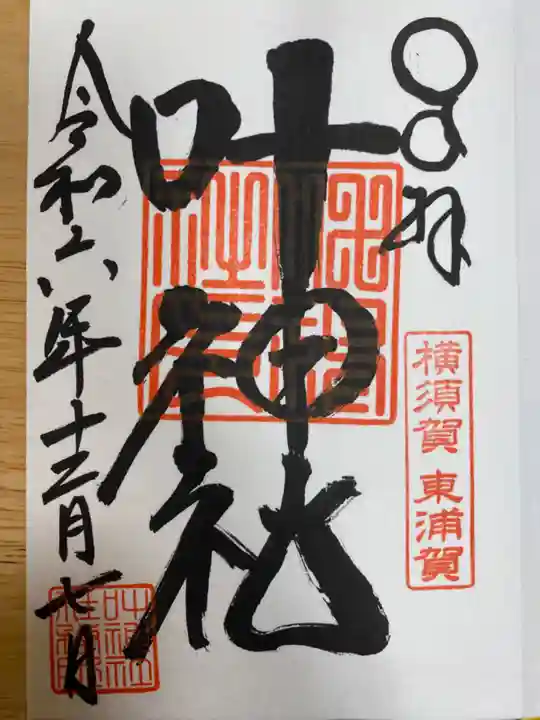 奉拝
横須賀 東浦賀
叶神社
令和六年十二月七日
叶神社